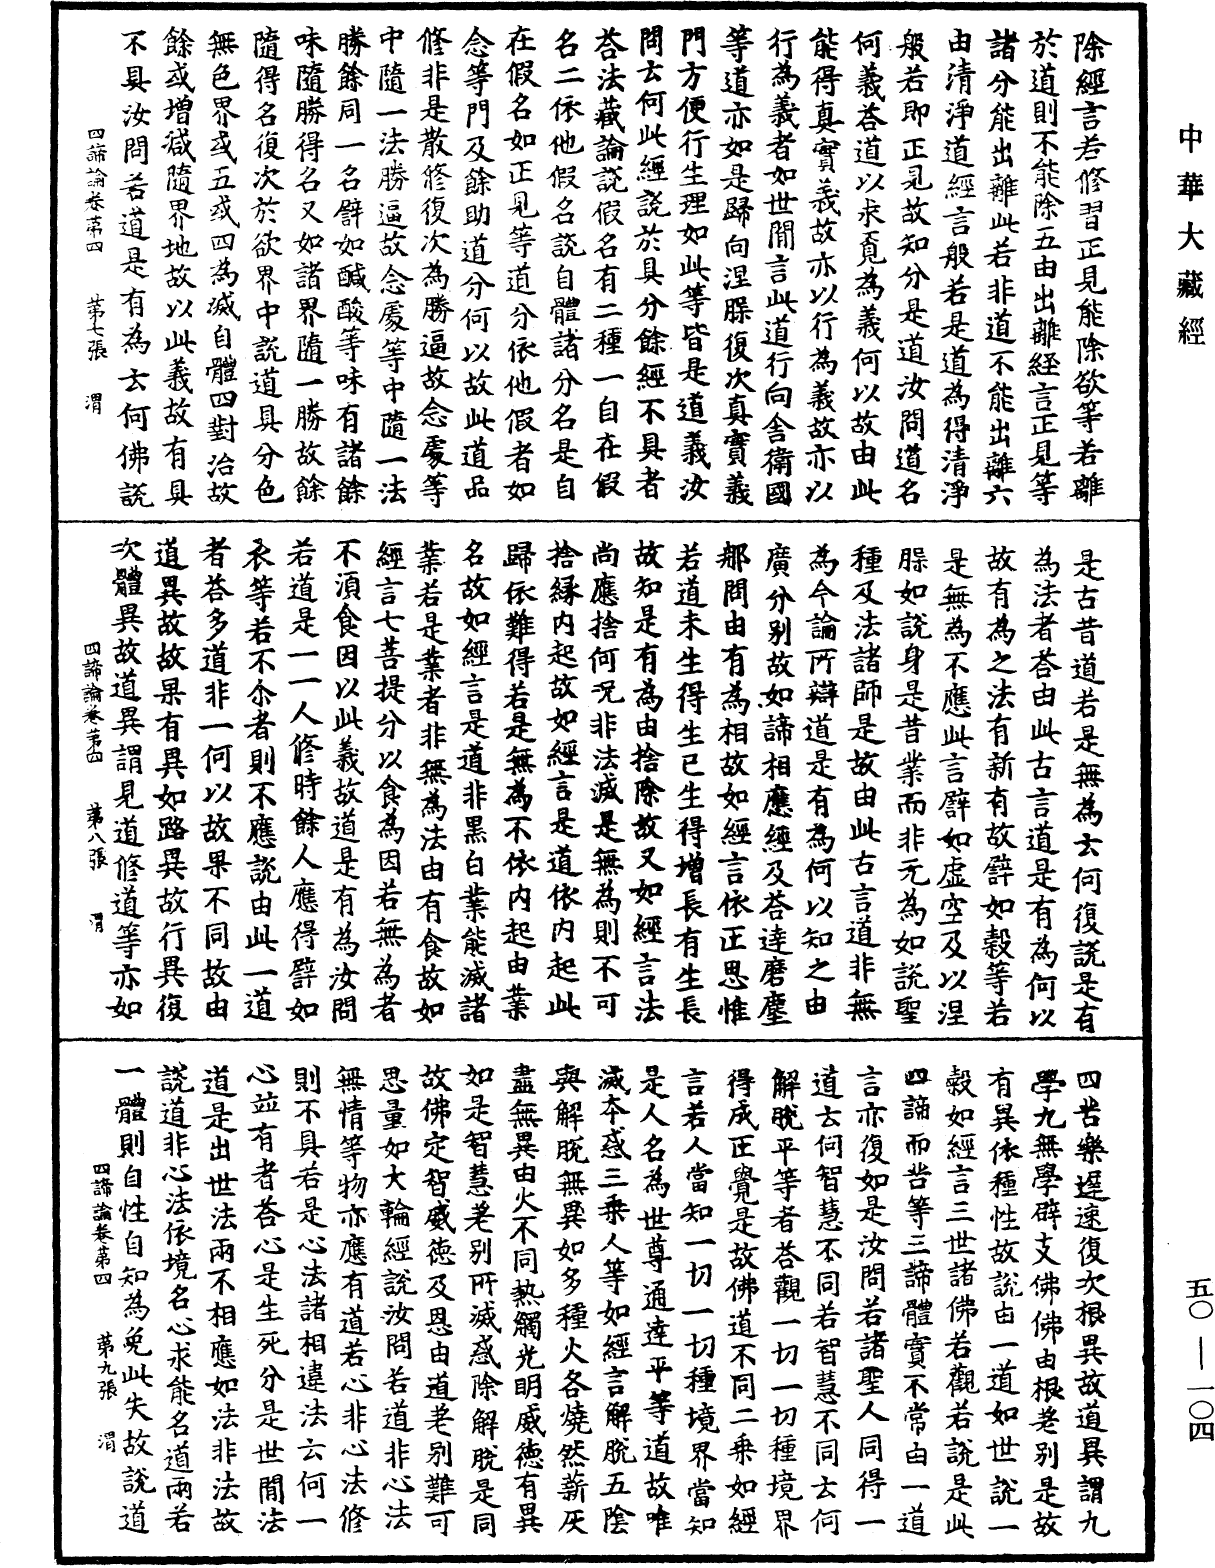 中華大藏經
除經言若修習正見能除欲等若離
於道則不能除五由出離經言正見等
諸分能出離此若非道不能出離六
由清淨道經言般若是道為得清淨
般若即正見故知分是道汝問道名
何義荅道以求覓為義何以故由此
能得真實義故亦以行為義故亦以
行為義者如世間言此道行向舍衛國
等道亦如是歸向涅槃復次真實義
門方便行生理如此等皆是道義汝
問云何此經說於具分餘經不具者
荅法藏論說假名有二種一自在假
名二依他假名說自體諸分名是自
在假名如正見等道分依他假者如
念等門及餘助道分何以故此道品
修非是散修復次為勝逼故念處等
中隨一法勝逼故念處等中隨一法
勝餘同一名譬如醎酸等味有諸餘
味隨勝得名又如諸界隨一勝故餘
隨得名復次於欲界中說道具分色
無色界或五或四為滅自體四對治故
餘或增減隨界地故以此義故有具
不具汝問若道是有為云何佛說
四諦論卷第四　第七張　渭
是古昔道若是無為云何復說是有
為法者荅由此古言道是有為何以
故有為之法有新有故譬如穀等若
是無為不應此言譬如虛空及以涅
槃如說身是昔業而非无為如說聖
種及法諸師是故由此古言道非無
為今論所辯道是有為何以知之由
廣分別故如諦相應經及荅達磨塵
那問由有為相故如經言依正思惟
若道未生得生已生得增長有生長
故知是有為由捨除故又如經言法
尚應捨何況非法滅是無為則不可
捨緣內起故如經言是道依內起此
歸依難得若是無為不依內起由業
名故如經言是道非黑白業能滅諸
業若是業者非無為法由有食故如
經言七菩提分以食為因若無為者
不湏食因以此義故道是有為汝問
若道是一一人修時餘人應得譬如
衣等若不尒者則不應說由此一道
者荅多道非一何以故果不同故由
道異故故果有異如路異故行異復
次體異故道異謂見道修道等亦如
四諦論卷第四　第八張　渭
四苦樂遲速復次根異故道異謂九
學九無學辟支佛佛由根差別是故
有異依種性故說由一道如世說一
穀如經言三世諸佛若觀若說是此
四諦而苦等三諦體實不常由一道
言亦復如是汝問若諸聖人同得一
道云何智慧不同若智慧不同云何
解脫平等者荅觀一切一切種境界
得成正覺是故佛道不同二乘如經
言若人當知一切一切種境界當知
是人名為世尊通達平等道故唯
滅本惑三乘人等如經言解脫五陰
與解脫無異如多種火各燒然薪灰
盡無異由火不同熱觸光明威德有異
如是智慧差別所滅惑除解脫是同
故佛定智威德及恩由道差別難可
思量如大輪經說汝問若道非心法
無情等物亦應有道若心非心法修
則不具若是心法諸相違法云何一
心並有者荅心是生死分是世間法
道是出世法兩不相應如法非法故
說道非心法依境名心求能名道兩若
一體則自性自知為免此失故說道
四諦論卷第四　第九張　渭
五〇—一〇四